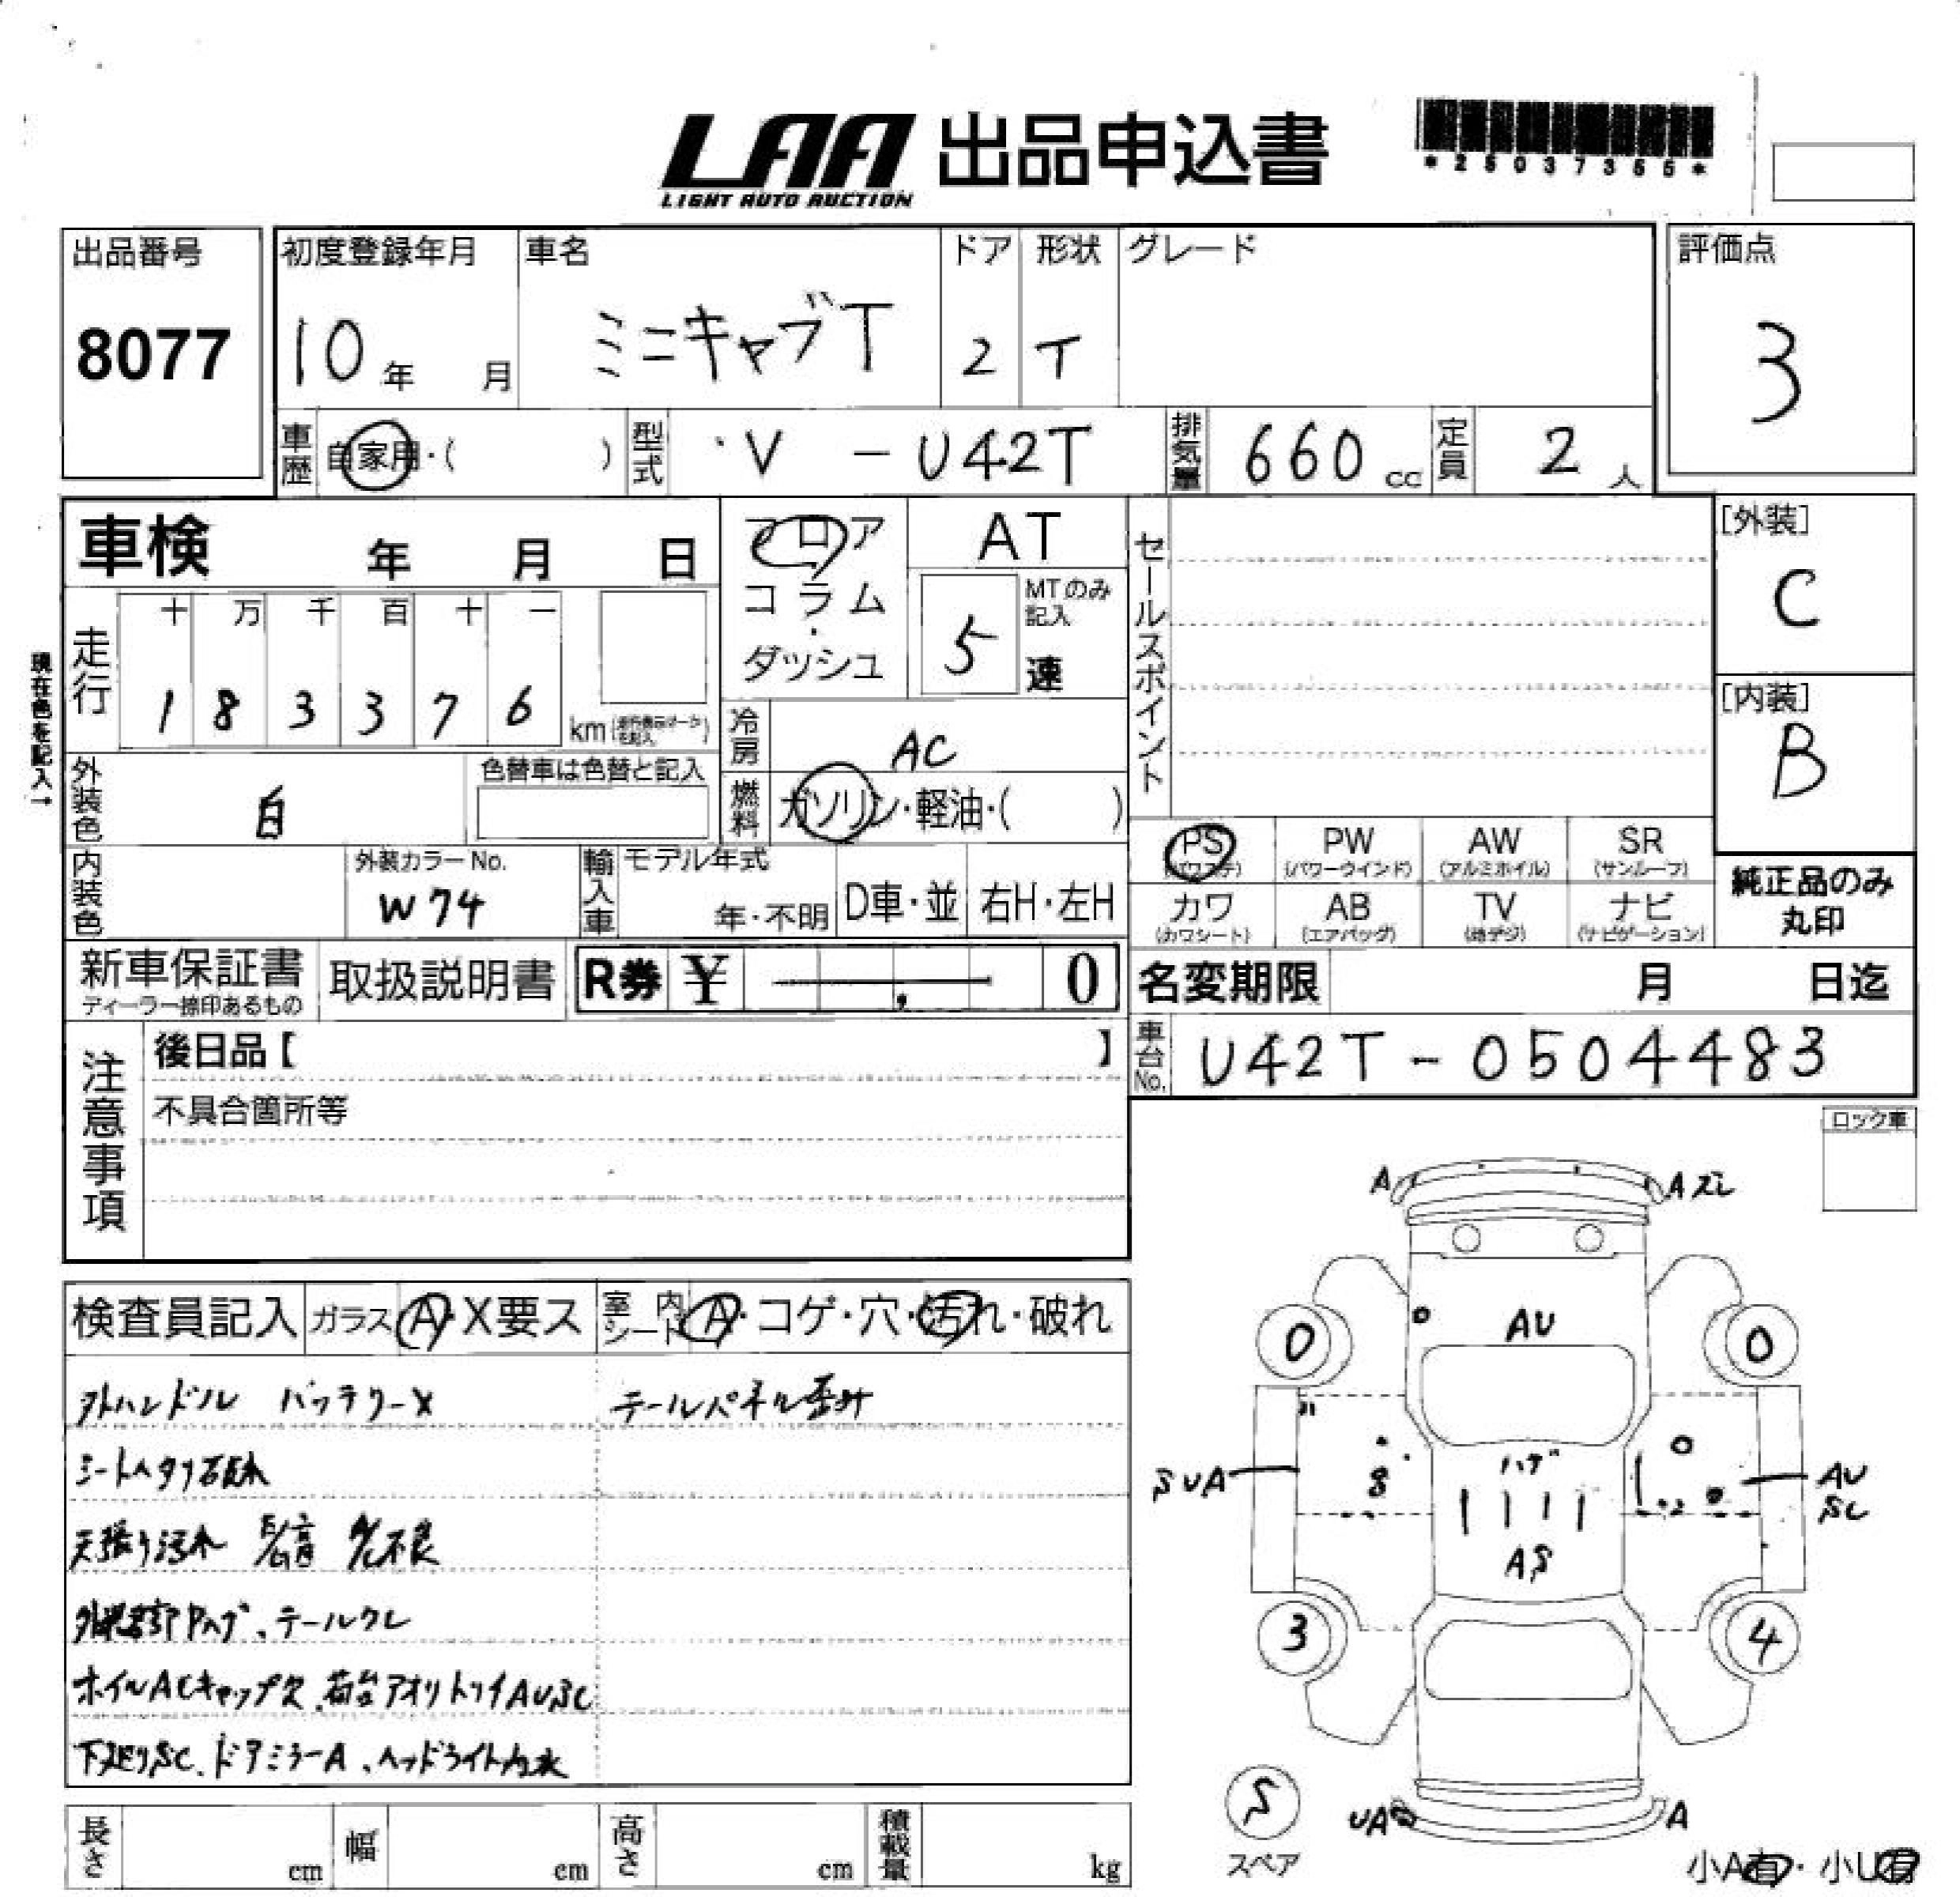 LAA 出品申込書
LIGHT AUTO AUCTION
*25037355*
出品番号 8077
初度登録年月 10年 月
車名 ミニキャブT
ドア 2
形状 T
グレード
評価点 3
車歴 自家用・( )
型式 V - U42T
排気量 660 cc
定員 2 人
車検 年 月 日
フロア・コラム・ダッシュ
AT
MTのみ記入 5 速
セールスポイント
[外装] C
[内装] B
現在色を記入→
走行 十 万 千 百 十 一
1 8 3 3 7 6 km
冷房 AC
燃料 ガソリン・軽油・( )
外装色 白
色替車は色替と記入
内装色
外装カラーNo. W74
輸入車 モデル年式 年・不明
D車・並 右H・左H
PS (パワステ) PW (パワーウインド) AW (アルミホイル) SR (サンルーフ)
カワ (カワシート) AB (エアバッグ) TV (地デジ) ナビ (ナビゲーション)
純正品のみ丸印
新車保証書 ディーラー捺印あるもの
取扱説明書
R券 ¥ 0
名変期限 月 日迄
車台No. U42T-0504483
注意事項
後日品【 】
不具合箇所等
ロック車
検査員記入 ガラス A・X要ス 室内シート A・コゲ・穴・汚れ・破れ
外ハンドル バッテリーX テールパネル歪ミ
シートヘタリ破れ
天張り汚れ
テールワレ
ホイルACキャップ欠、荷台アオリトリイAUSC
下廻りSC、ドアミラーA、ヘッドライト内水
A A ズレ
0 AU 0
SUA S ハゲ AU SC
AS
3 4
S スペア
UA A
小A有・小U有
長さ cm 幅 cm 高さ cm 積載量 kg